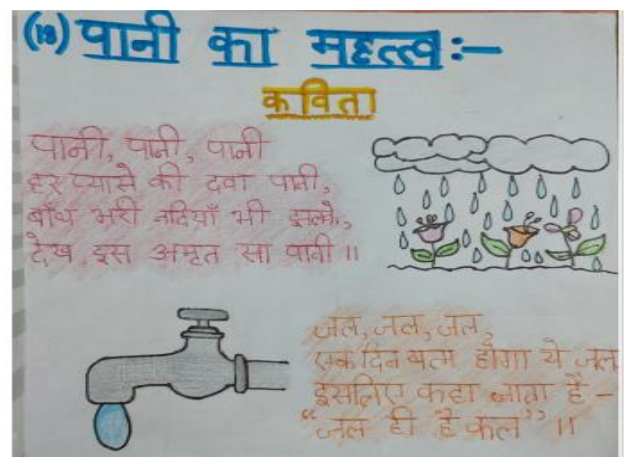 (13) पानी का महत्त्व :-
कविता
पानी, पानी, पानी
हर प्यासे की दवा पानी,
बाँध भरी नदियाँ भी इसको,
देख इस अमृत सा पानी ॥
जल, जल, जल,
एक दिन खत्म होगा ये जल
इसलिए कहा जाता है -
"जल ही है कल" ॥